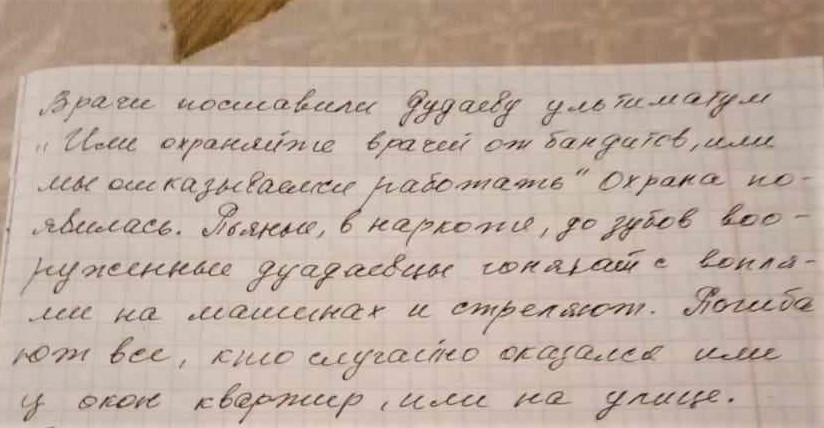 Врачи поставили Дудаеву ультиматум
„Или охраняйте врачей от бандитов, или
мы отказываемся работать" Охрана по-
явилась. Пьяные, в наркоте, до зубов воо-
руженные дуадаевцы гоняют с вопля-
ми на машинах и стреляют. Погиба
ют все, кто случайно оказался или
у окон квартир, или на улице.